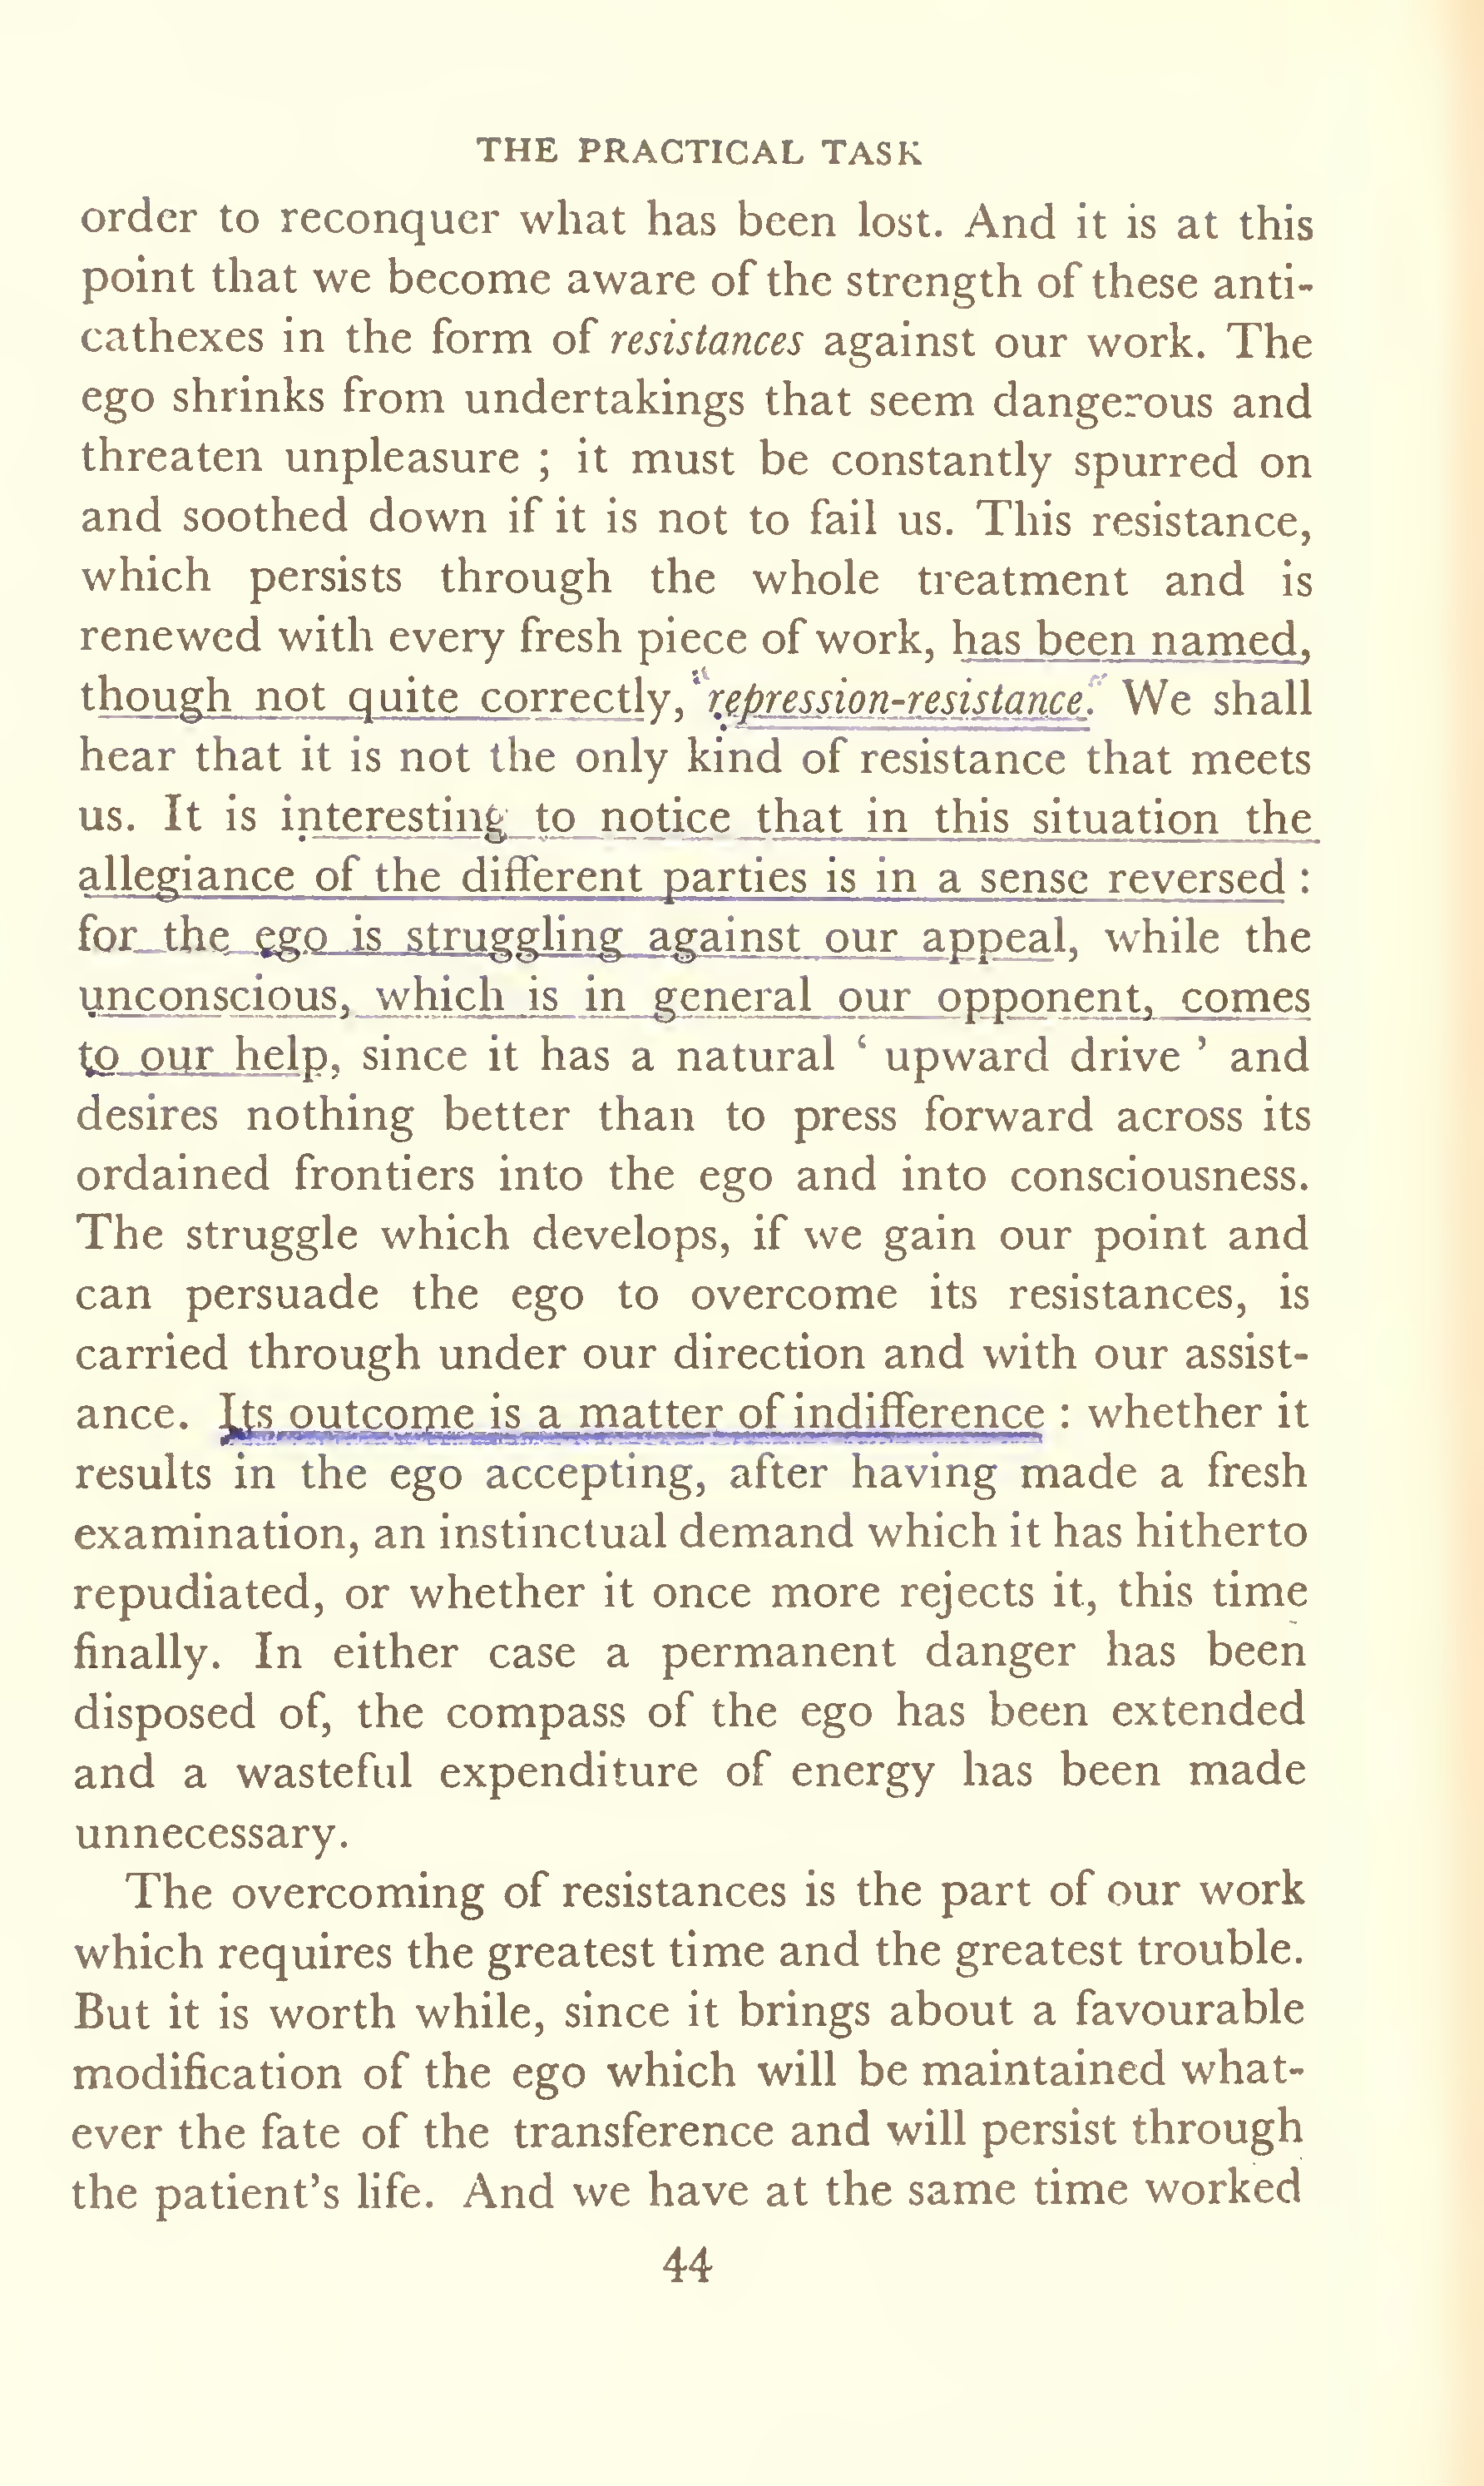 THE PRACTICAL TASK
order to reconquer what has been lost. And it is at this
point that we become aware of the strength of these anti-
cathexes in the form of resistances against our work. The
ego shrinks from undertakings that seem dangerous and
threaten unpleasure ; it must be constantly spurred on
and soothed down if it is not to fail us. This resistance,
which persists through the whole treatment and is
renewed with every fresh piece of work, has been named,
though not quite correctly, "repression-resistance." We shall
hear that it is not the only kind of resistance that meets
us. It is interesting to notice that in this situation the
allegiance of the different parties is in a sense reversed :
for the ego is struggling against our appeal, while the
unconscious, which is in general our opponent, comes
to our help, since it has a natural ‘ upward drive ’ and
desires nothing better than to press forward across its
ordained frontiers into the ego and into consciousness.
The struggle which develops, if we gain our point and
can persuade the ego to overcome its resistances, is
carried through under our direction and with our assist-
ance. Its outcome is a matter of indifference : whether it
results in the ego accepting, after having made a fresh
examination, an instinctual demand which it has hitherto
repudiated, or whether it once more rejects it, this time
finally. In either case a permanent danger has been
disposed of, the compass of the ego has been extended
and a wasteful expenditure of energy has been made
unnecessary.
The overcoming of resistances is the part of our work
which requires the greatest time and the greatest trouble.
But it is worth while, since it brings about a favourable
modification of the ego which will be maintained what-
ever the fate of the transference and will persist through
the patient's life. And we have at the same time worked
44